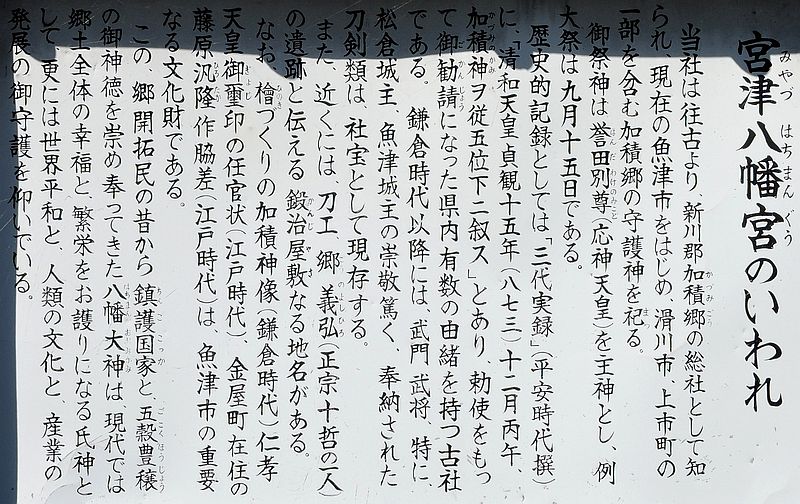 宮津八幡宮のいわれ
当社は往古より、新川郡加積郷の総社として知
られ、現在の魚津市をはじめ、滑川市、上市町の
一部を含む加積郷の守護神を祀る。
御祭神は誉田別尊(応神天皇)を主神とし、例
大祭は九月十五日である。
歴史的記録としては「三代実録」(平安時代撰)
に、「清和天皇貞観十五年(八七三)十二月丙午、
加積神ヲ従五位下ニ叙ス」とあり、勅使をもっ
て御勧請になった県内有数の由緒を持つ古社
である。鎌倉時代以降には、武門、武将、特に
松倉城主、魚津城主の崇敬篤く、奉納された
刀剣類は、社宝として現存する。
また、近くには、刀工 郷 義弘(正宗十哲の一人)
の遺跡と伝える 鍛冶屋敷なる地名がある。
なお、檜づくりの加積神像(鎌倉時代)仁孝
天皇御璽印の任官状(江戸時代)、金屋町在住の
藤原汎隆作脇差(江戸時代)は、魚津市の重要
なる文化財である。
この、郷開拓民の昔から 鎮護国家と、五穀豊穣
の御神徳を崇め奉ってきた八幡大神は 現代では
郷土全体の幸福と、繁栄をお護りになる氏神と
して、更には世界平和と、人類の文化と、産業の
発展の御守護を仰いでいる。